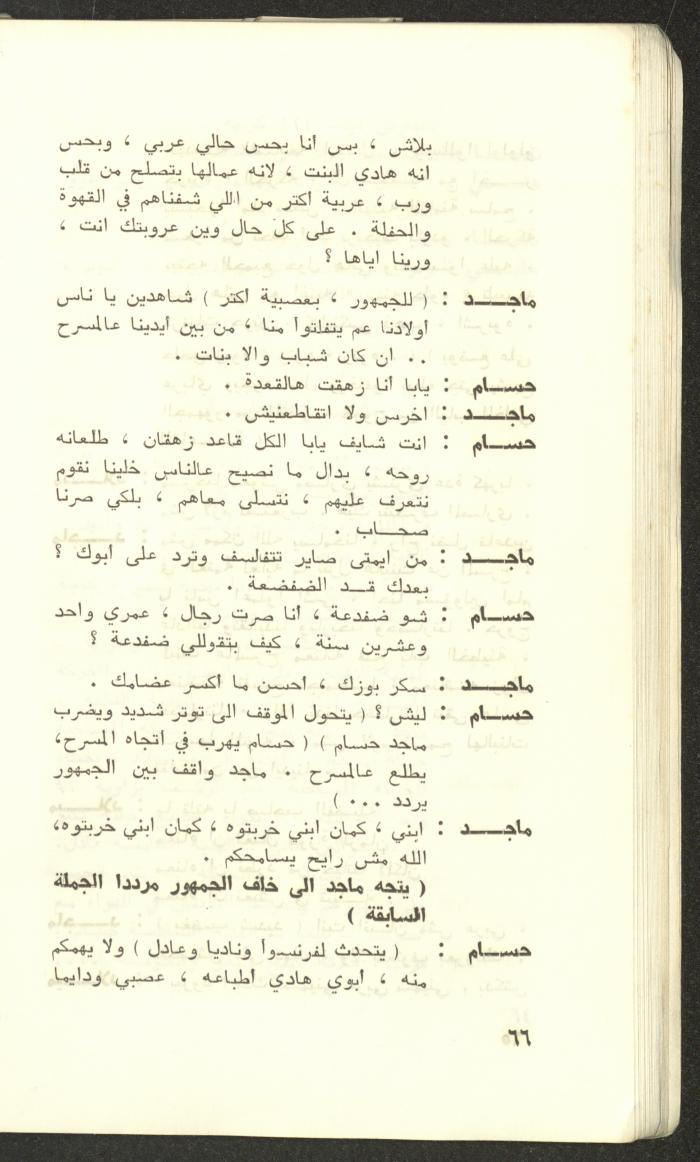 بلاش ، بس أنا بحس حالي عربي ، وبحس
انه هادي البنت ، لانه عمالها بتصلح من قلب
ورب ، عربية أكتر من اللي شفناهم في القهوة
والحفلة . على كل حال وين عروبتك انت ،
ورينا اياها ؟
ماجـــد : ( للجمهور ، بعصبية أكتر ) شاهدين يا ناس
أولادنا عم يتفلتوا منا ، من بين أيدينا عالمسرح
.. ان كان شباب والا بنات .
حســـام : يابا أنا زهقت هالقعدة .
ماجـــد : اخرس ولا اتقاطعنيش .
حســـام : انت شايف يابا الكل قاعد زهقان ، طلعانه
روحه ، بدال ما نصيح عالناس خلينا نقوم
نتعرف عليهم ، نتسلى معاهم ، بلكي صرنا
صحـــاب .
ماجـــد : من ايمتى صاير تتفالسف وترد على أبوك ؟
بعدك قـــد الضفضعة .
حســـام : شو ضفدعة ، أنا صرت رجال ، عمري واحد
وعشرين سنة ، كيف بتقوللي ضفدعة ؟
ماجـــد : سكر بوزك ، احسن ما أكسر عضامك .
حســـام : ليش ؟ ( يتحول الموقف الى توتر شديد ويضرب
ماجد حسام ) ( حسام يهرب في أتجاه المسرح،
يطلع عالمسرح . ماجد واقف بين الجمهور
يردد ... )
ماجـــد : ابني ، كمان ابني خربتوه ، كمان ابني خربتوه،
الله مش رايح يسامحكم .
( يتجه ماجد الى خلف الجمهور مرددا الجملة
السابقة )
حســـام : ( يتحدث لفرنسوا وناديا وعادل ) ولا يهمكم
منه ، أبوي هادي أطباعه ، عصبي ودايما
٦٦